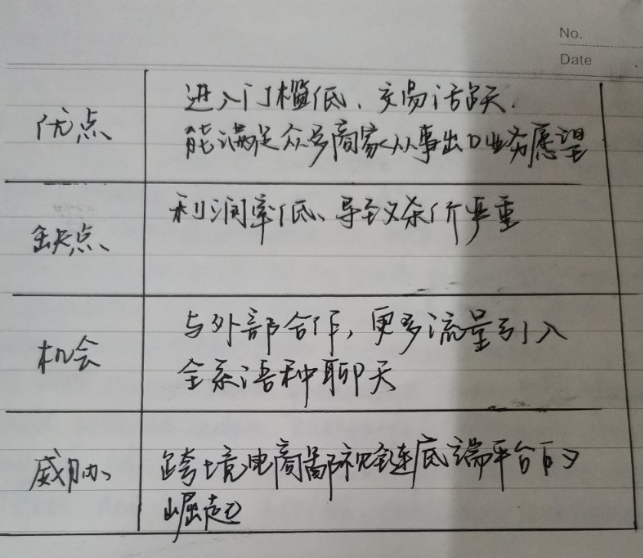 No.
Date
优点
进入门槛低、交易活跃,
能满足众多商家从事出口业务愿望
缺点
利润率低、导致杀价严重
机会
与外部合作, 更多流量引入
全系语种聊天
威胁
跨境电商鄙视链底端平台的
崛起